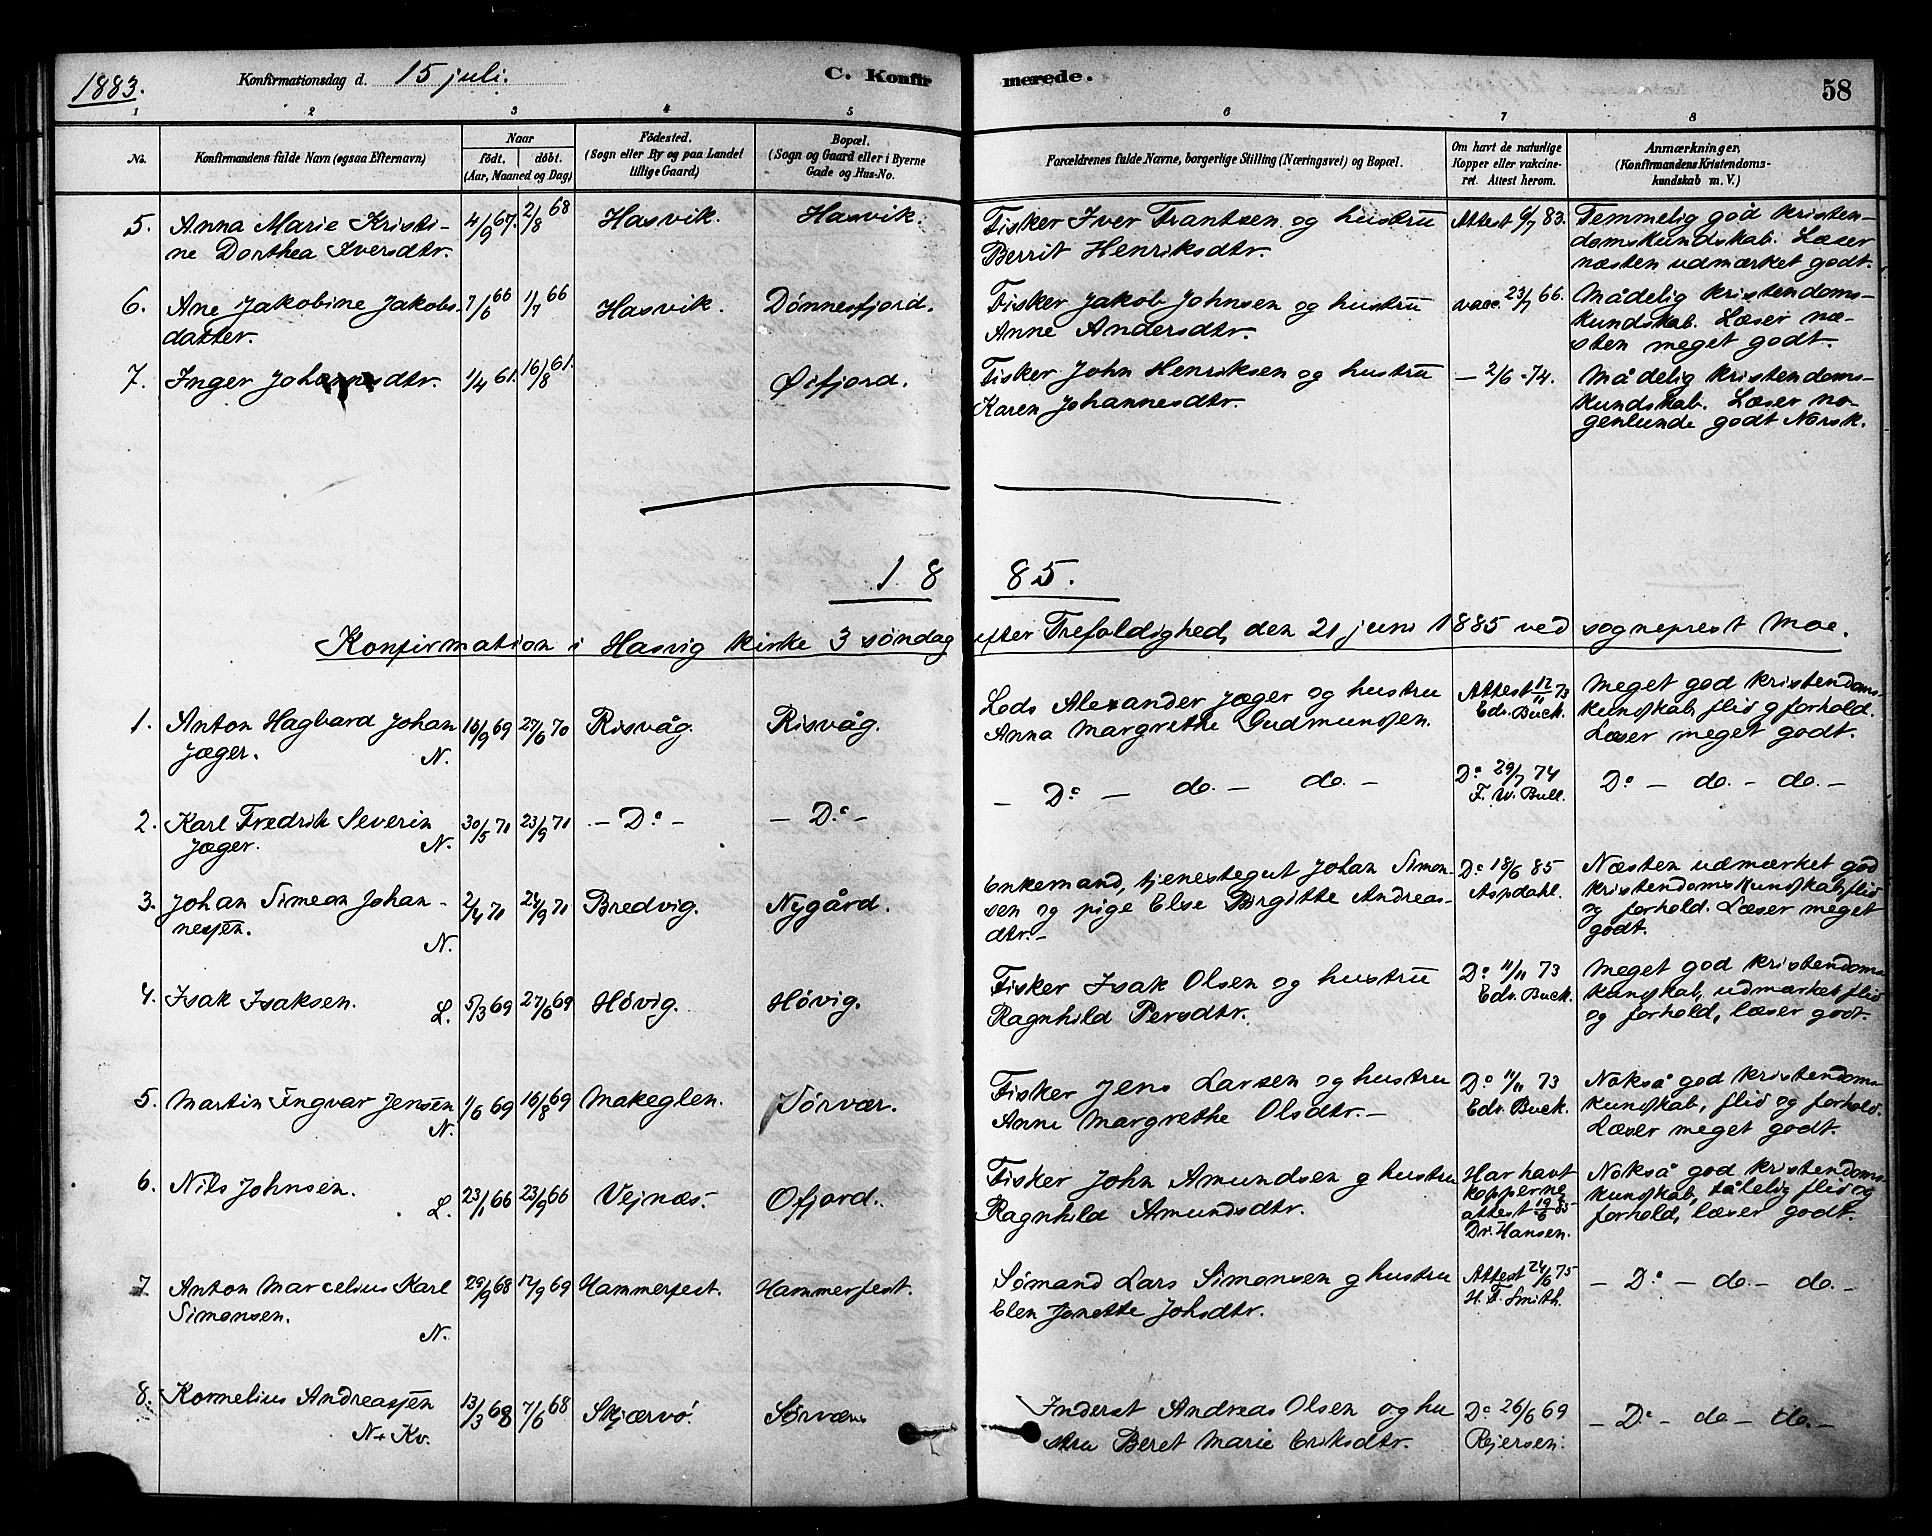 1883. Konfirmationsdag d. 15 juli. C. Konfir merede. 58
1 2 3 4 5 6 7 8
No. Konfirmandens fulde Navn (ogsaa Efternavn) Naar født. døbt. (Aar, Maaned og Dag) Födested. (Sogn eller By og paa Landet tillige Gaard) Bopæl. (Sogn og Gaard eller i Byerne Gade og Hus-No. Forældrenes fulde Navne, borgerlige Stilling (Næringsvei) og Bopæl. Om havt de naturlige Kopper eller vakcineret. Attest herom. Anmærkninger, (Konfirmandens Kristendomskundskab m. V.)
5. Anna Marie Kristi- 4/9 67. 2/8 68 Hasvik. Hasvik. Fisker Iver Frantsen og hustru Attest 6/7 83. Temmelig god kristen-
ne Dorthea Iversdtr. Berrit Henriksdtr. domskundskab. Læser
næsten udmærket godt.
6. Ane Jakobine Jakobs- 7/6 66 1/7 66 Hasvik. Dønnesfjord. Fisker Jakob Johnsen og hustru vacc. 23/7 66. Mådelig kristendoms-
datter. Anne Andersdtr. kundskab. Læser næ-
sten meget godt.
7. Inger Johannesdtr. 1/4 61. 16/8 61. Øifjord. Fisker John Henriksen og hustru — 2/6 -74. Mådelig kristendoms-
Karen Johannesdtr. kundskab. Læser no-
genlunde godt Norsk.
18 85.
Konfirmation i Hasvig kirke 3 søndag efter Trefoldighed, den 21 juni 1885 ved sogneprest Moe.
1. Anton Hagbard Johan 16/9 69 27/6 70 Risvåg. Risvåg. Lods Alexander Jæger og hustru Attest 12/11 73 Meget god kristendoms-
Jæger. N. Anna Margrethe Gudmundsen. Edv. Buck. kundskab, flid g forhold.
Læser meget godt.
2. Karl Fredrik Severin 30/5 71 23/9 71 – Do – – Do – – Do – do. – do. – Do 29/7 74 Do – do. – do. –
Jæger. N. F. W. Bull.
3. Johan Simeon Johan- 2/4 71 24/9 71 Bredvig. Nygård. Enkemand, tjenestegut Johan Simon- Do 18/6 85 Næsten udmærket god
nesen. N. sen og pige Else Birgitte Andreas- Aspdahl. kristendomskundskab, flid
dtr. – og forhold. Læser meget
godt.
4. Isak Isaksen. L. 5/3 69 27/6 69 Høvig. Høvig. Fisker Isak Olsen og hustru Do 11/11 73 Meget god kristendoms-
Ragnhild Persdtr. Edv. Buck. kundskab, udmærket flid
og forhold, læser godt.
5. Martin Ingvar Jensen 1/6 69 16/8 69 Makeglen. Sørvær. Fisker Jens Larsen og hustru Do 11/11 73 Nokså god kristendoms-
N. Anne Margrethe Olsdtr. – Edv. Buck. kundskab, flid og forhold.
Læser meget godt.
6. Nils Johnsen. L. 23/1 66 23/9 66 Vejnæs. Ofjord. Fisker John Amundsen g hustru Har havt Nokså god kristendoms-
Ragnhild Amundsdtr. kopperne kundskab, tålelig flid og
attest 19/6 85 forhold, læser godt.
Dr. Hansen.
7. Anton Marcelius Karl 29/9 68 12/9 69 Hammerfest. Hammerfest. Sømand Lars Simonsen g hustru Attest 24/6 75 – Do – do – do. –
Simonsen. N. Elen Jonette Johsdtr. H. F. Smith.
8. Kornelius Andreassen 13/3 68 7/6 68 Skjærvø. Sørvær Inderst Andreas Olsen og hu Do 26/6 69 – Do – do – do. –
N + Kv. stru Beret Marie Eriksdtr. Rejersen.